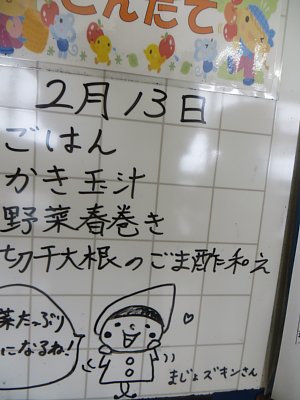 こんだて
2月13日
ごはん
かき玉汁
野菜春巻き
切干大根のごま酢和え
菜たっぷり
になるね!
まじょズキンさん